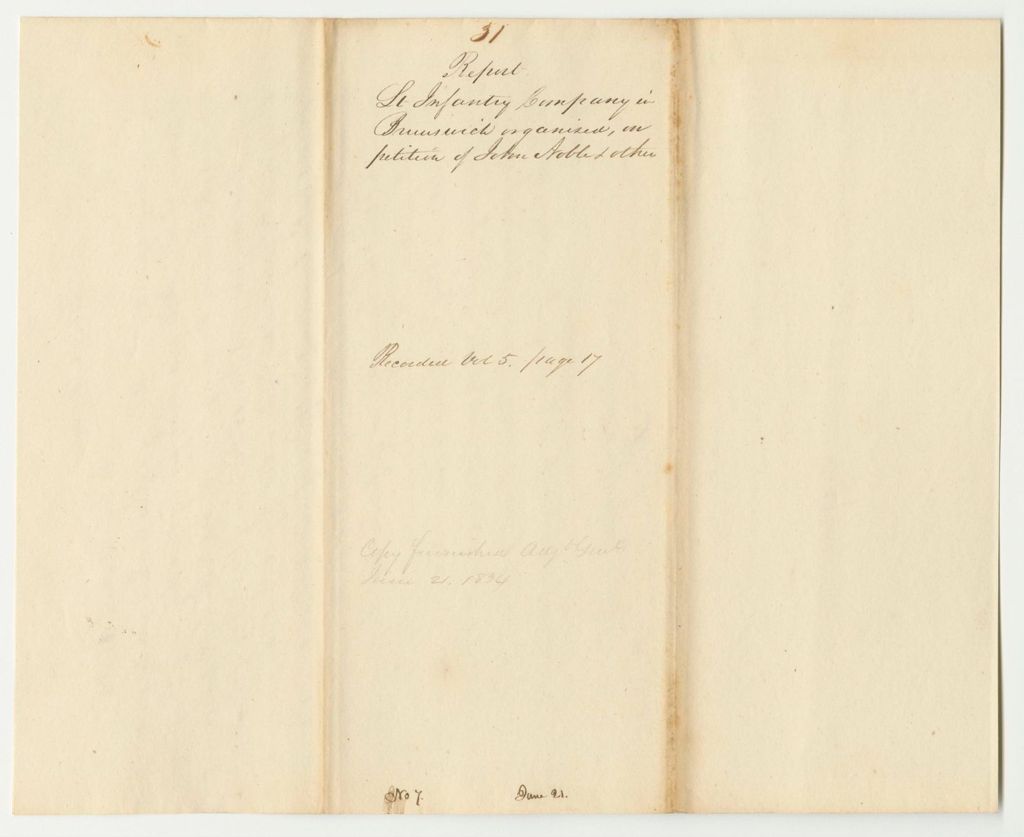 31
Report
Lt Infantry Company in
Brunswick organised, on
petition of John Noble & other
Recorded Vol 5. page 17
Copy furnished Adjt Genl
June 21. 1834
No 7. June 21.